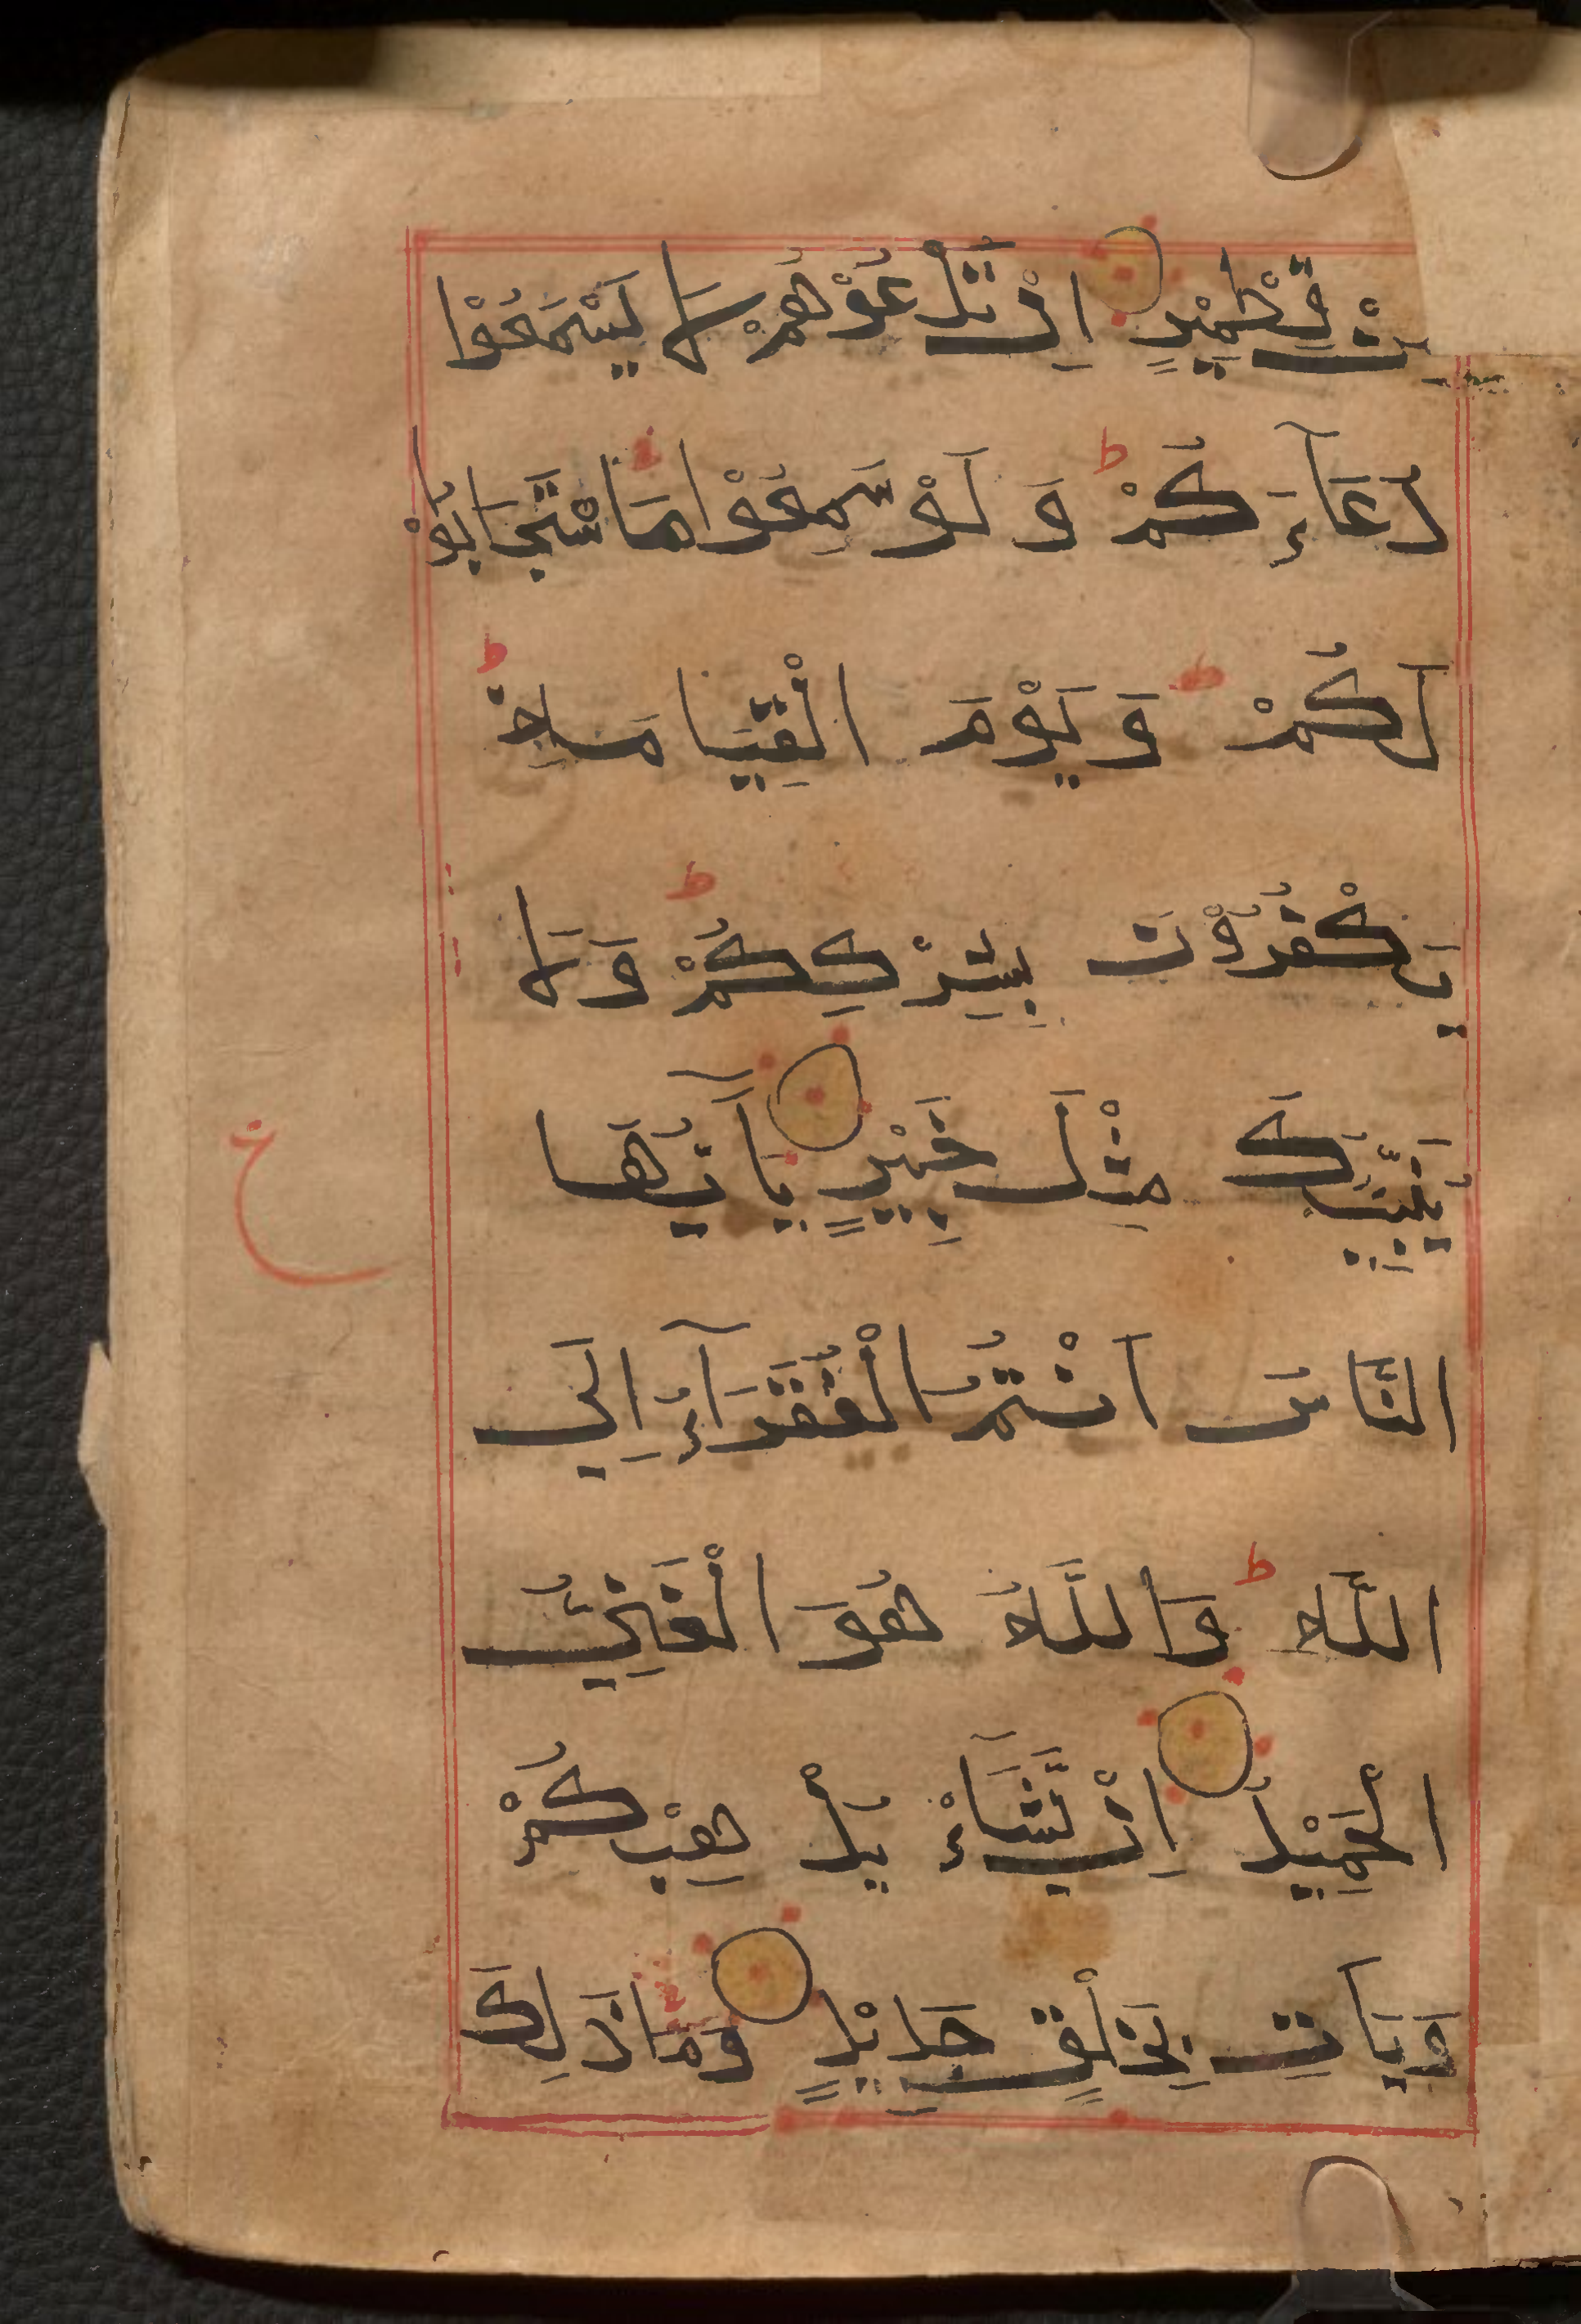 نْ قِطْمِيْرٍ اِنْ تَدْعُوْهُمْ لَا يَسْمَعُوْا
دُعَآءَكُمْ ط وَ لَوْ سَمِعُوْا مَا اسْتَجَابُوْا
لَكُمْ ط وَ يَوْمَ الْقِيَامَةِ ط
يَكْفُرُوْنَ بِشِرْكِكُمْ ط وَلَا
يُنَبِّئُكَ مِثْلُ خَبِيْرٍ يٰآ اَيُّهَا
ع
النَّاسُ اَنْتُمُ الْفُقَرَآءُ اِلَى
اللّٰهِ ط وَاللّٰهُ هُوَ الْغَنِيُّ
الْحَمِيْدُ اِنْ يَّشَاْ يُذْهِبْكُمْ
وَيَاْتِ بِخَلْقٍ جَدِيْدٍ وَمَا ذٰلِكَ